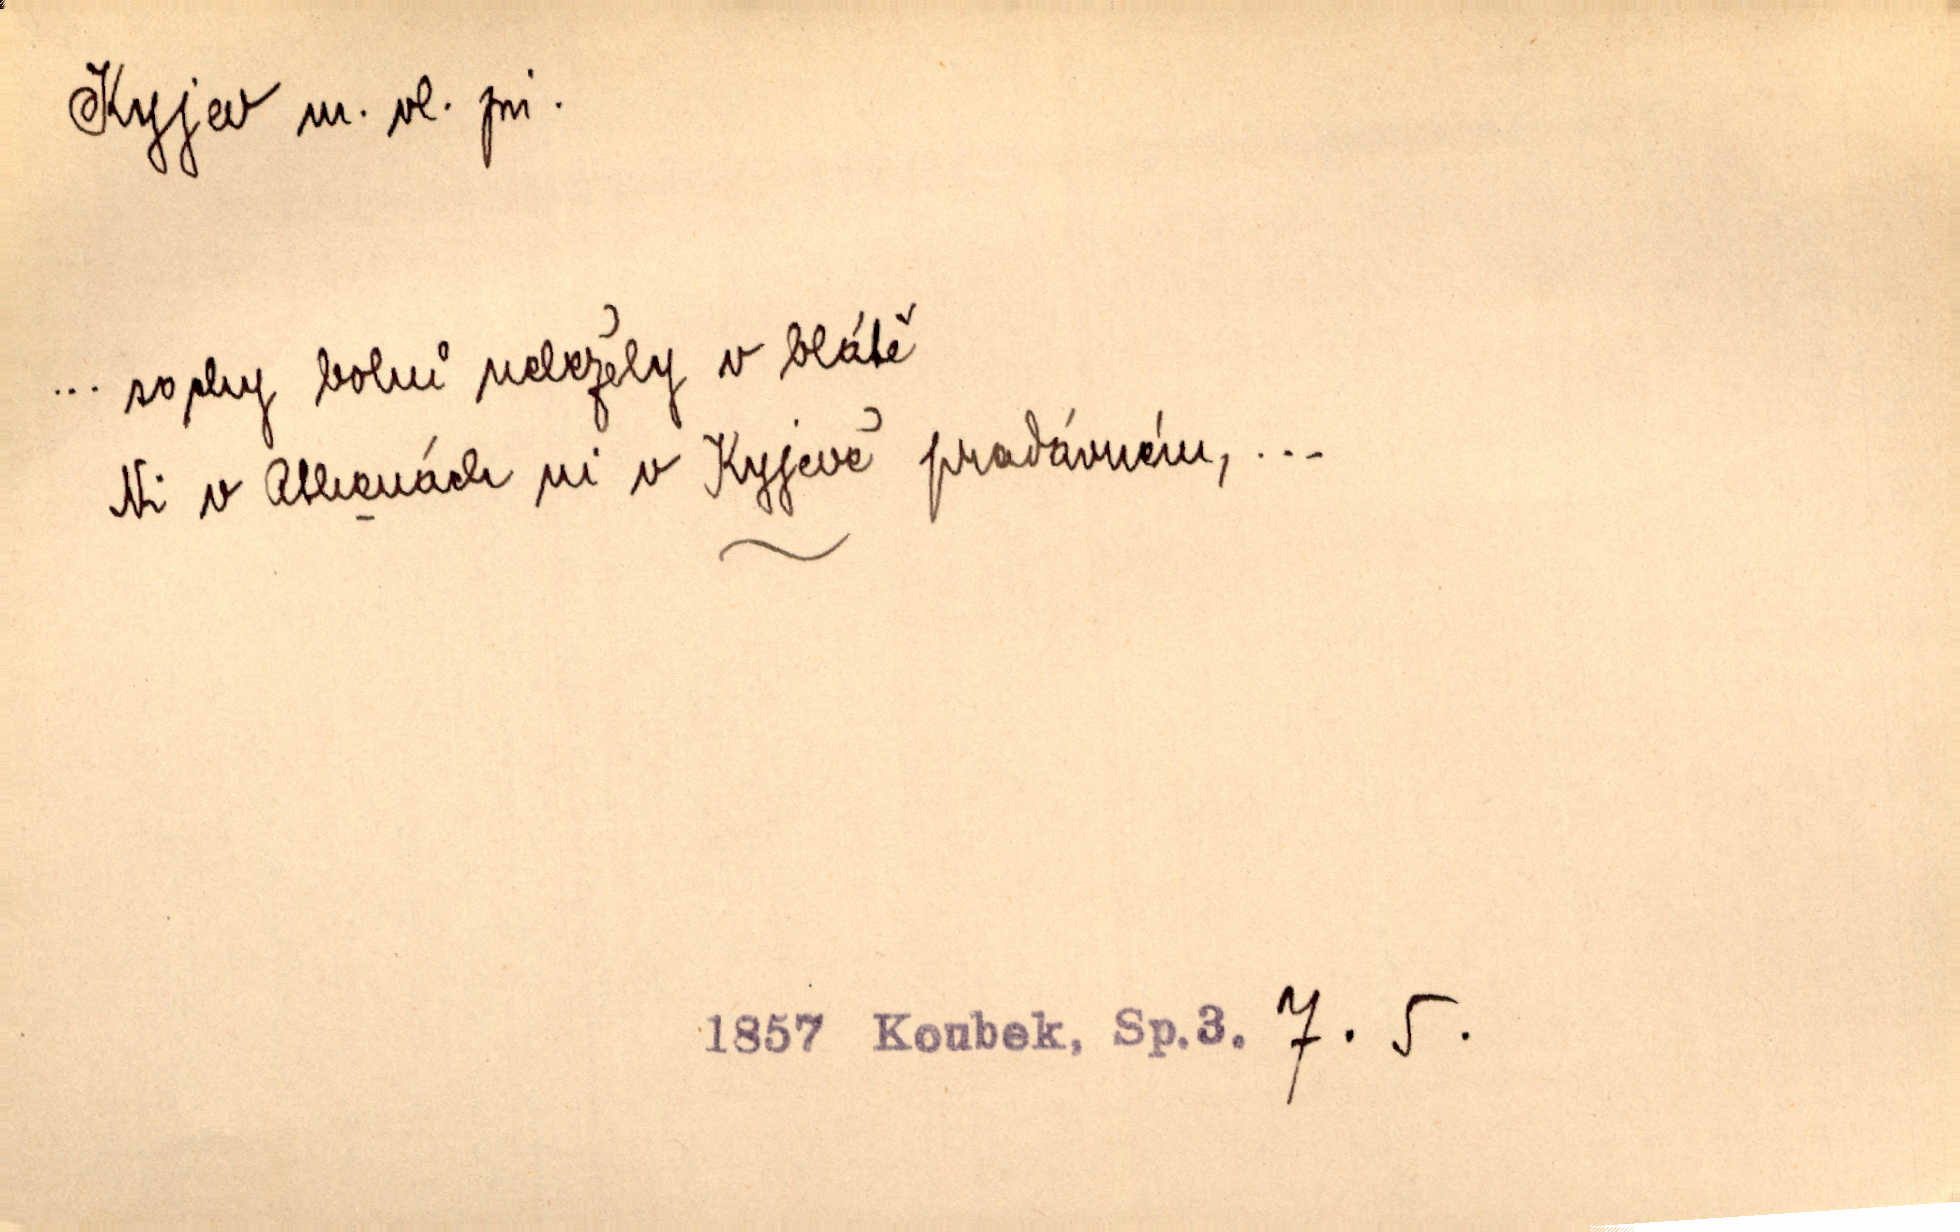 Kyjev m. vl. jm.
... sochy bohů neležely v blátě
Ni v Athenách ni v Kyjevě pradávném, ...
1857 Koubek, Sp.3. 7. 5.